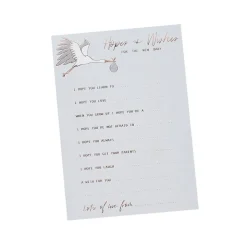 Hopes & Wishes
FOR THE NEW BABY
I HOPE YOU LEARN TO
I HOPE YOU LOVE
WHEN YOU GROW UP I HOPE YOU'RE A
I HOPE YOU'RE NOT AFRAID OF
I HOPE YOU ALWAYS
I HOPE YOU GET YOUR PARENTS'
I HOPE YOU LAUGH
A WISH FOR YOU
Lots of love from